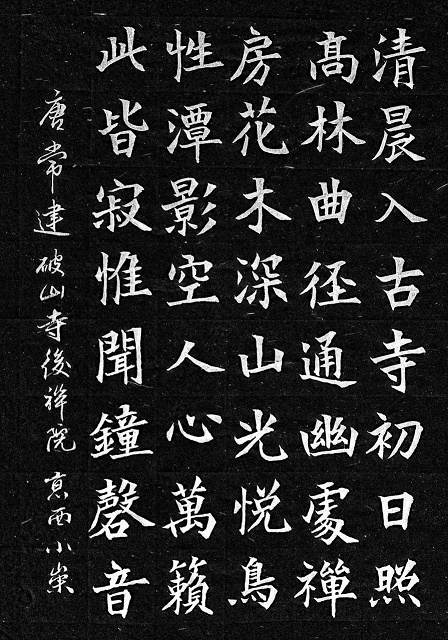 清晨入古寺初日照
髙林曲径通幽處禪
房花木深山光悦鳥
性潭影空人心萬籟
此皆寂惟聞鐘磬音
唐常建破山寺後禅院 西小